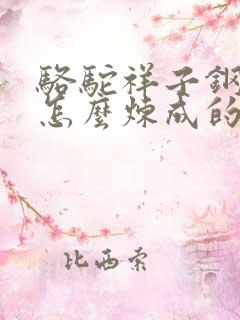 駱駝祥子鋼
怎麼煉成的
比西索